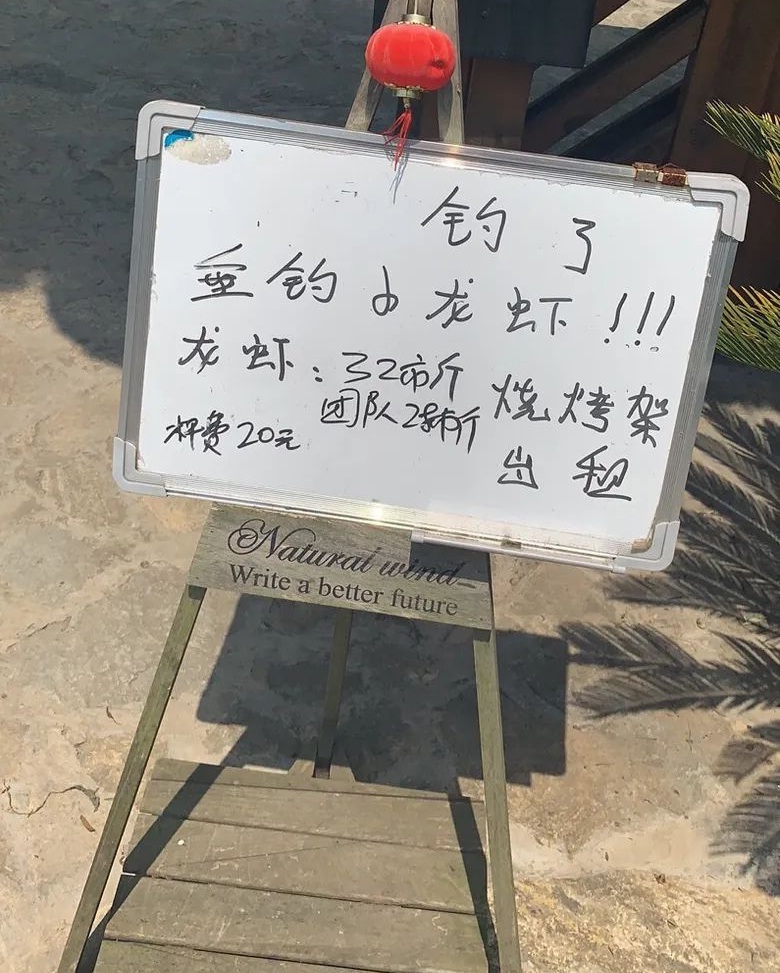 钓了
垂钓小龙虾!!!
龙虾:32市斤
团队28市斤
杆费20元
烧烤架
出租
Natural wind
Write a better future